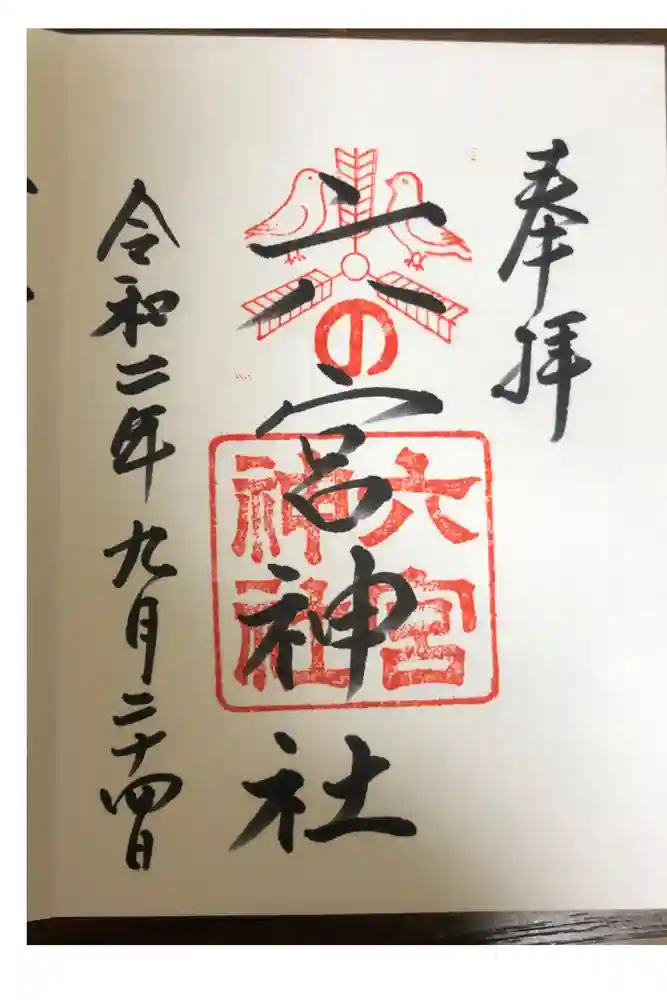 奉拝
六宮神社
の
六宮
神社
令和二年九月二十四日